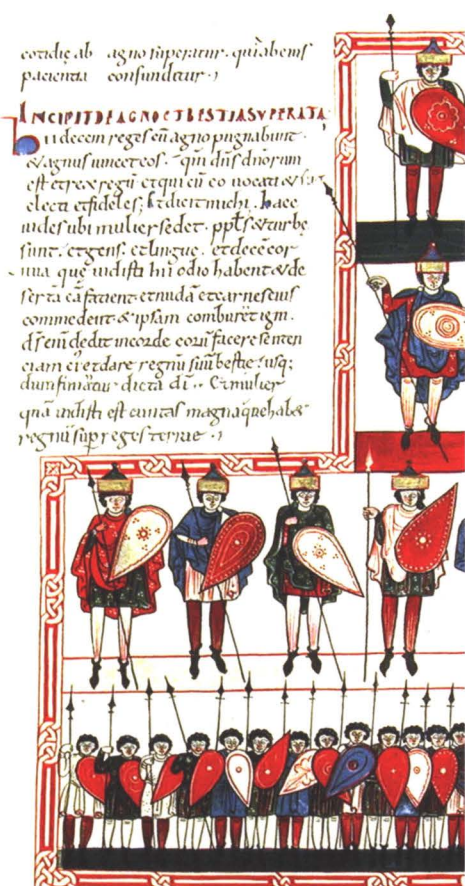 cotidie ab agno superatur. quia benis
pacientia confundetur
INCIPIT DE AGNO ET BESTIA SUPERATA
Hii decem reges cu agno pugnabunt.
& agnus uincet eos. qm dns dnorum
est et rex regu et qui cu eo uocati
electi et fideles; Et dicit michi. haec
undes ubi mulier sedet. ppls & turbe
sunt. et gens. et lingue. et dece cor
nua que uidisti hii odio habent & de
serta ea facient et nuda et carnes eius
commedent. & ipsam comburet igni.
ds eni dedit in corde eoru facere senten
ciam ei et dare regnu suu bestie. usq;
dum finiatur dicta di. Et mulier
qua uidisti est ciuitas magna que hab&
regnu sup reges terrae